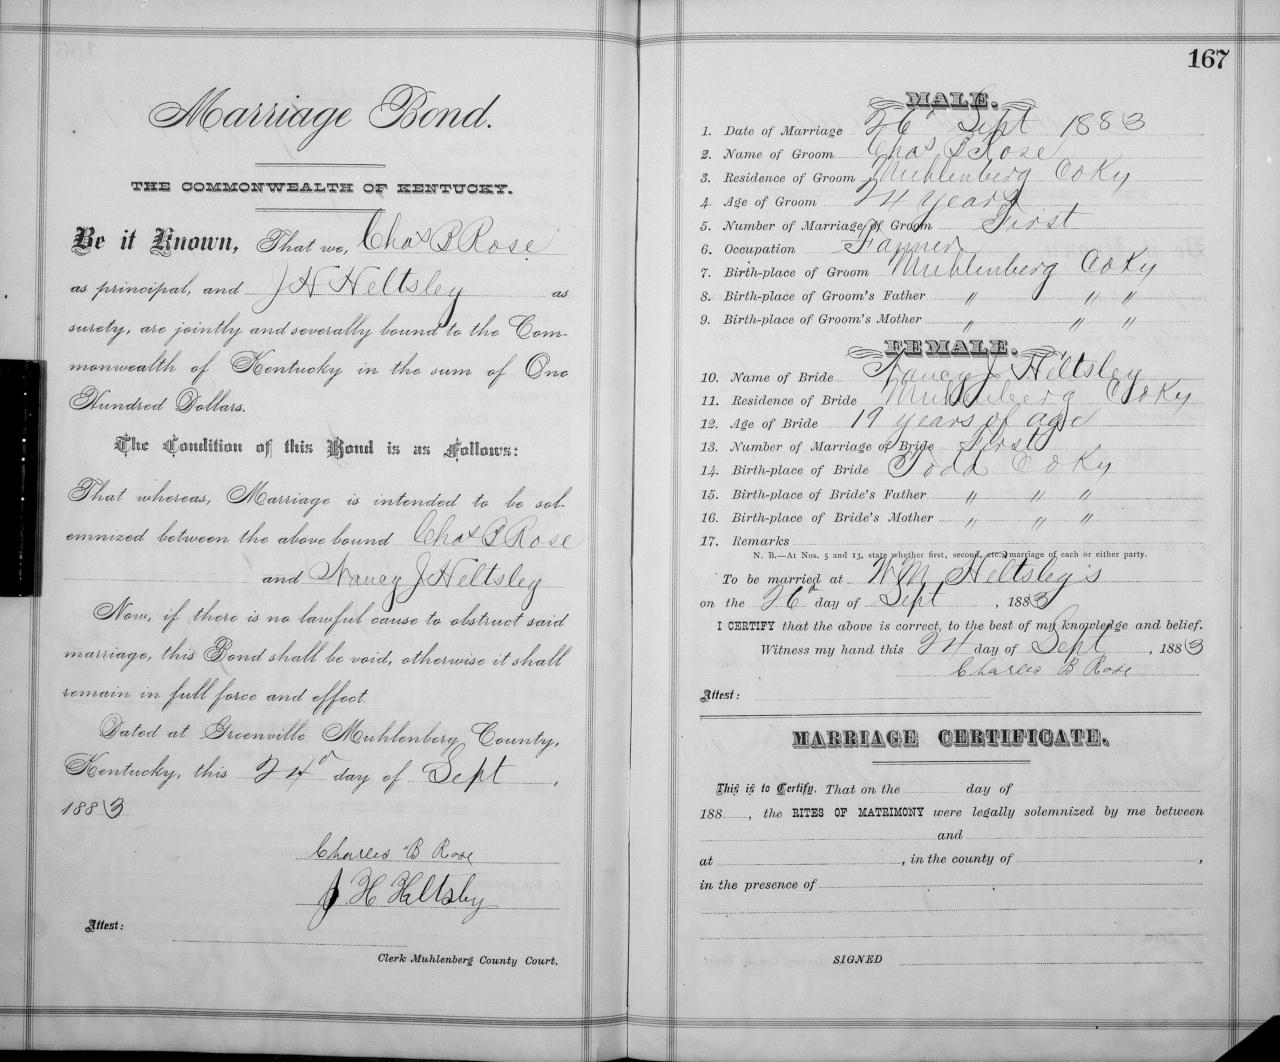 Marriage Bond.
THE COMMONWEALTH OF KENTUCKY.
Be it Known, That we, Chas B Rose
as principal, and J H Heltsley as
surety, are jointly and severally bound to the Com-
monwealth of Kentucky in the sum of One
Hundred Dollars.
The Condition of this Bond is as Follows:
That whereas, Marriage is intended to be sol-
emnized between the above bound Chas B Rose
and Nancy J Heltsley
Now, if there is no lawful cause to obstruct said
marriage, this Bond shall be void, otherwise it shall
remain in full force and effect.
Dated at Greenville Muhlenberg County,
Kentucky, this 24d day of Sept ,
1883
Charles B Rose
J H Heltsley
Attest:
Clerk Muhlenberg County Court.
167
MALE.
1. Date of Marriage 26d Sept 1883
2. Name of Groom Chas B Rose
3. Residence of Groom Muhlenberg Co Ky
4. Age of Groom 24 years
5. Number of Marriage of Groom First
6. Occupation Farmer
7. Birth-place of Groom Muhlenberg Co Ky
8. Birth-place of Groom's Father " " "
9. Birth-place of Groom's Mother " " "
FEMALE.
10. Name of Bride Nancy J Heltsley
11. Residence of Bride Muhlenberg Co Ky
12. Age of Bride 19 years of age
13. Number of Marriage of Bride First
14. Birth-place of Bride Todd Co Ky
15. Birth-place of Bride's Father " " "
16. Birth-place of Bride's Mother " " "
17. Remarks
N. B.—At Nos. 5 and 13, state whether first, second, etc., marriage of each or either party.
To be married at W M Heltsley's
on the 26d day of Sept , 1883
I CERTIFY that the above is correct, to the best of my knowledge and belief.
Witness my hand this 24 day of Sept , 1883
Charles B Rose
Attest:
MARRIAGE CERTIFICATE.
This is to Certify, That on the day of
188 , the RITES OF MATRIMONY were legally solemnized by me between
and
at , in the county of ,
in the presence of
SIGNED